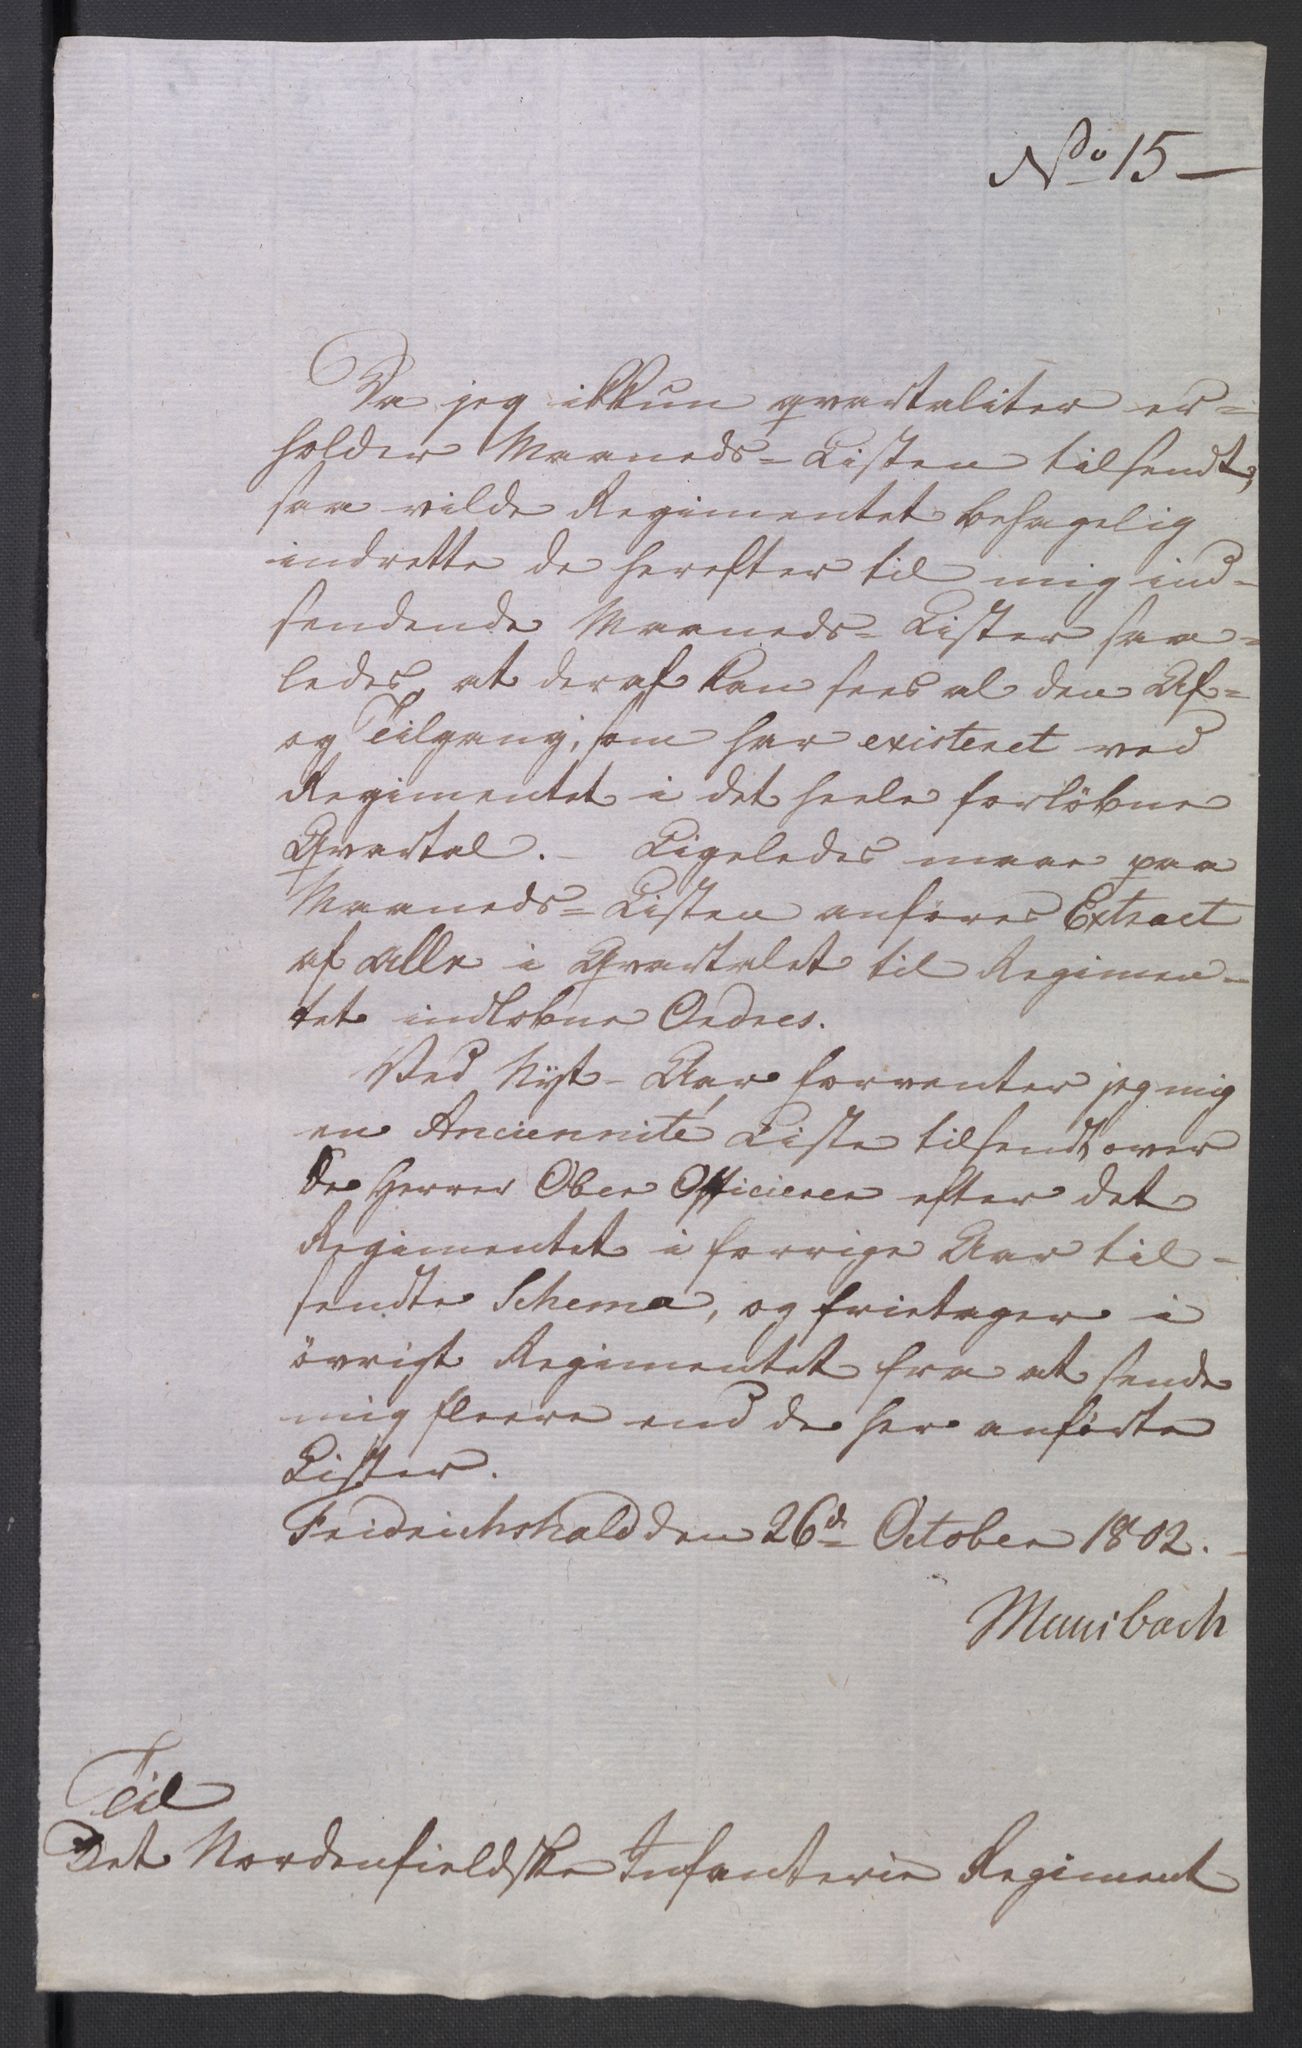 No 15 —
Da jeg ikkun qvartaliter er=
holder Maaneds=Listen tilsendt,
saa vilde Regimentet behagelig
indrette de herefter til mig ind-
sendende Maaneds=Lister saa=
ledes, at deraf kan sees al den Af=
og Tilgang, som har existeret ved
Regimentet i det heele forløbne
Qvartal. — Ligeledes maae paa
Maaneds=Listen anføres Extract
af alle i Qvartalet til Regimen-
tet indlobne Ordres.
Ved Nyt-Aar forventer jeg mig
en Anciennité Liste tilsendt over
De Herrer Ober Officierer efter det
Regimentet i forrige Aar til-
sendte Schema, og frietager i
övrigt Regimentet fra at sende
mig fleere end de her anførte
Lister.
Fridrichshald den 26de October 1802. -
Mansbach
Til
Det Nordenfieldske Infanterie Regiment